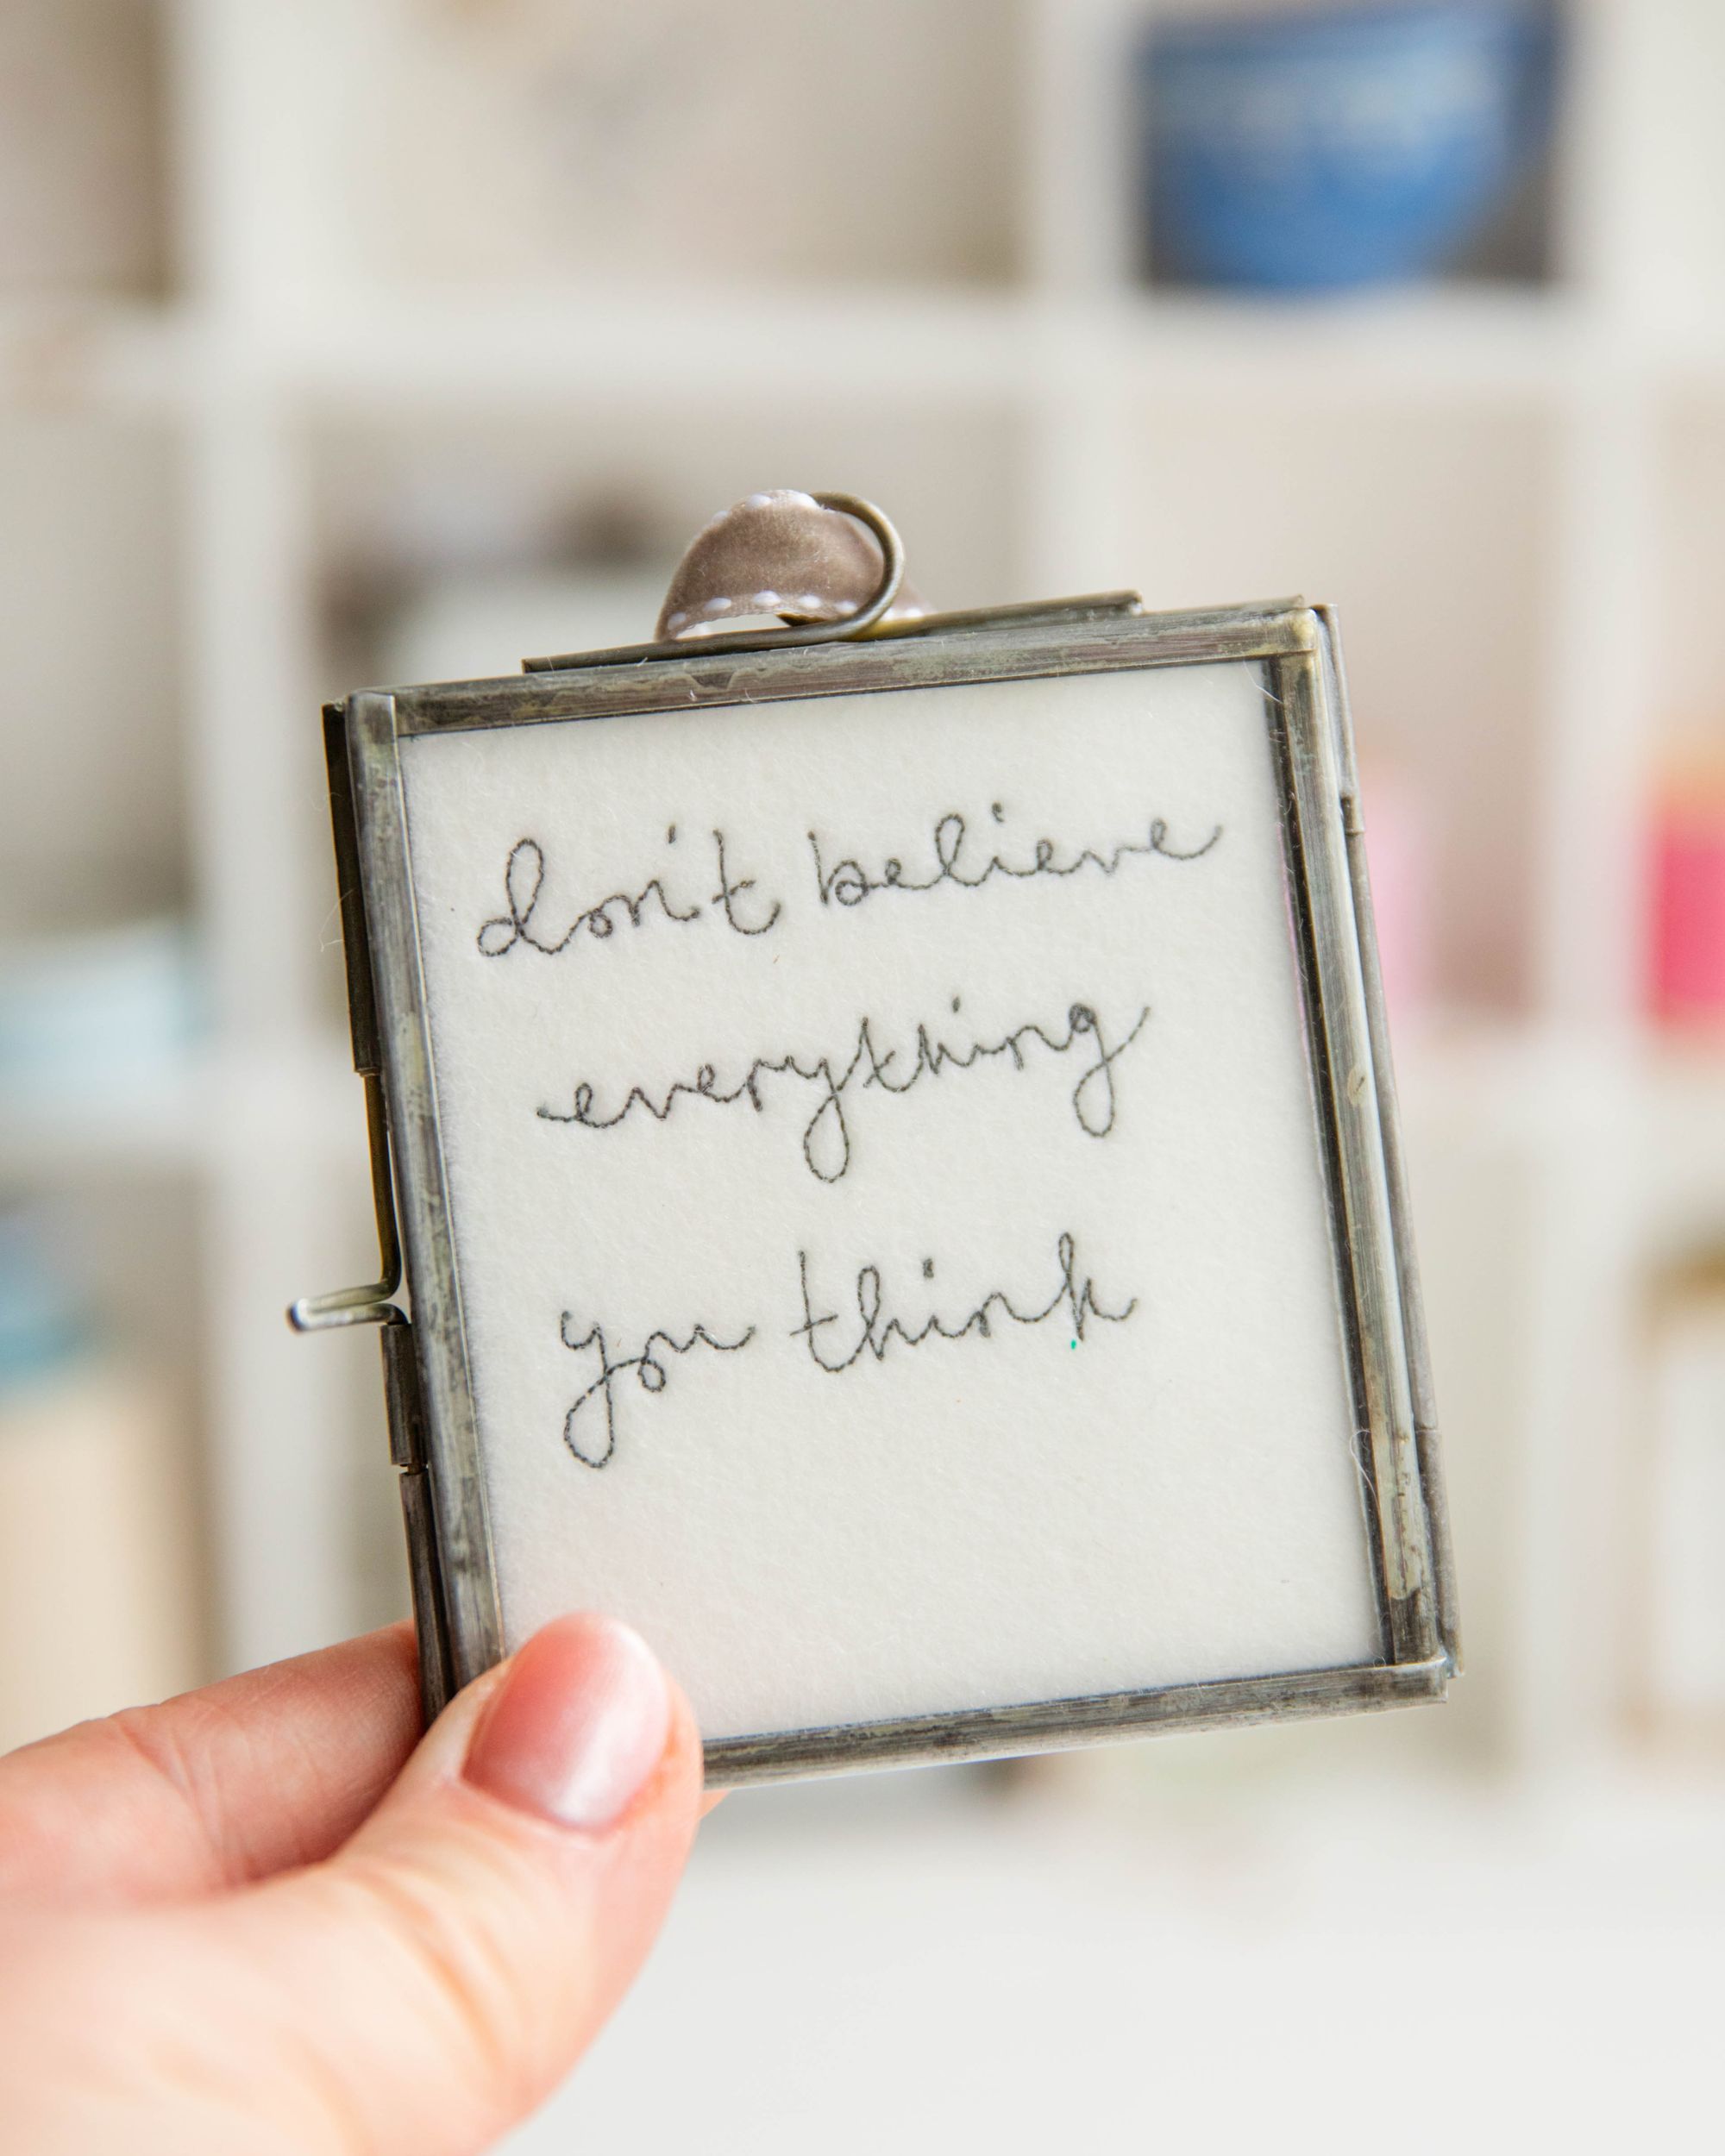 don't believe
everything
you think